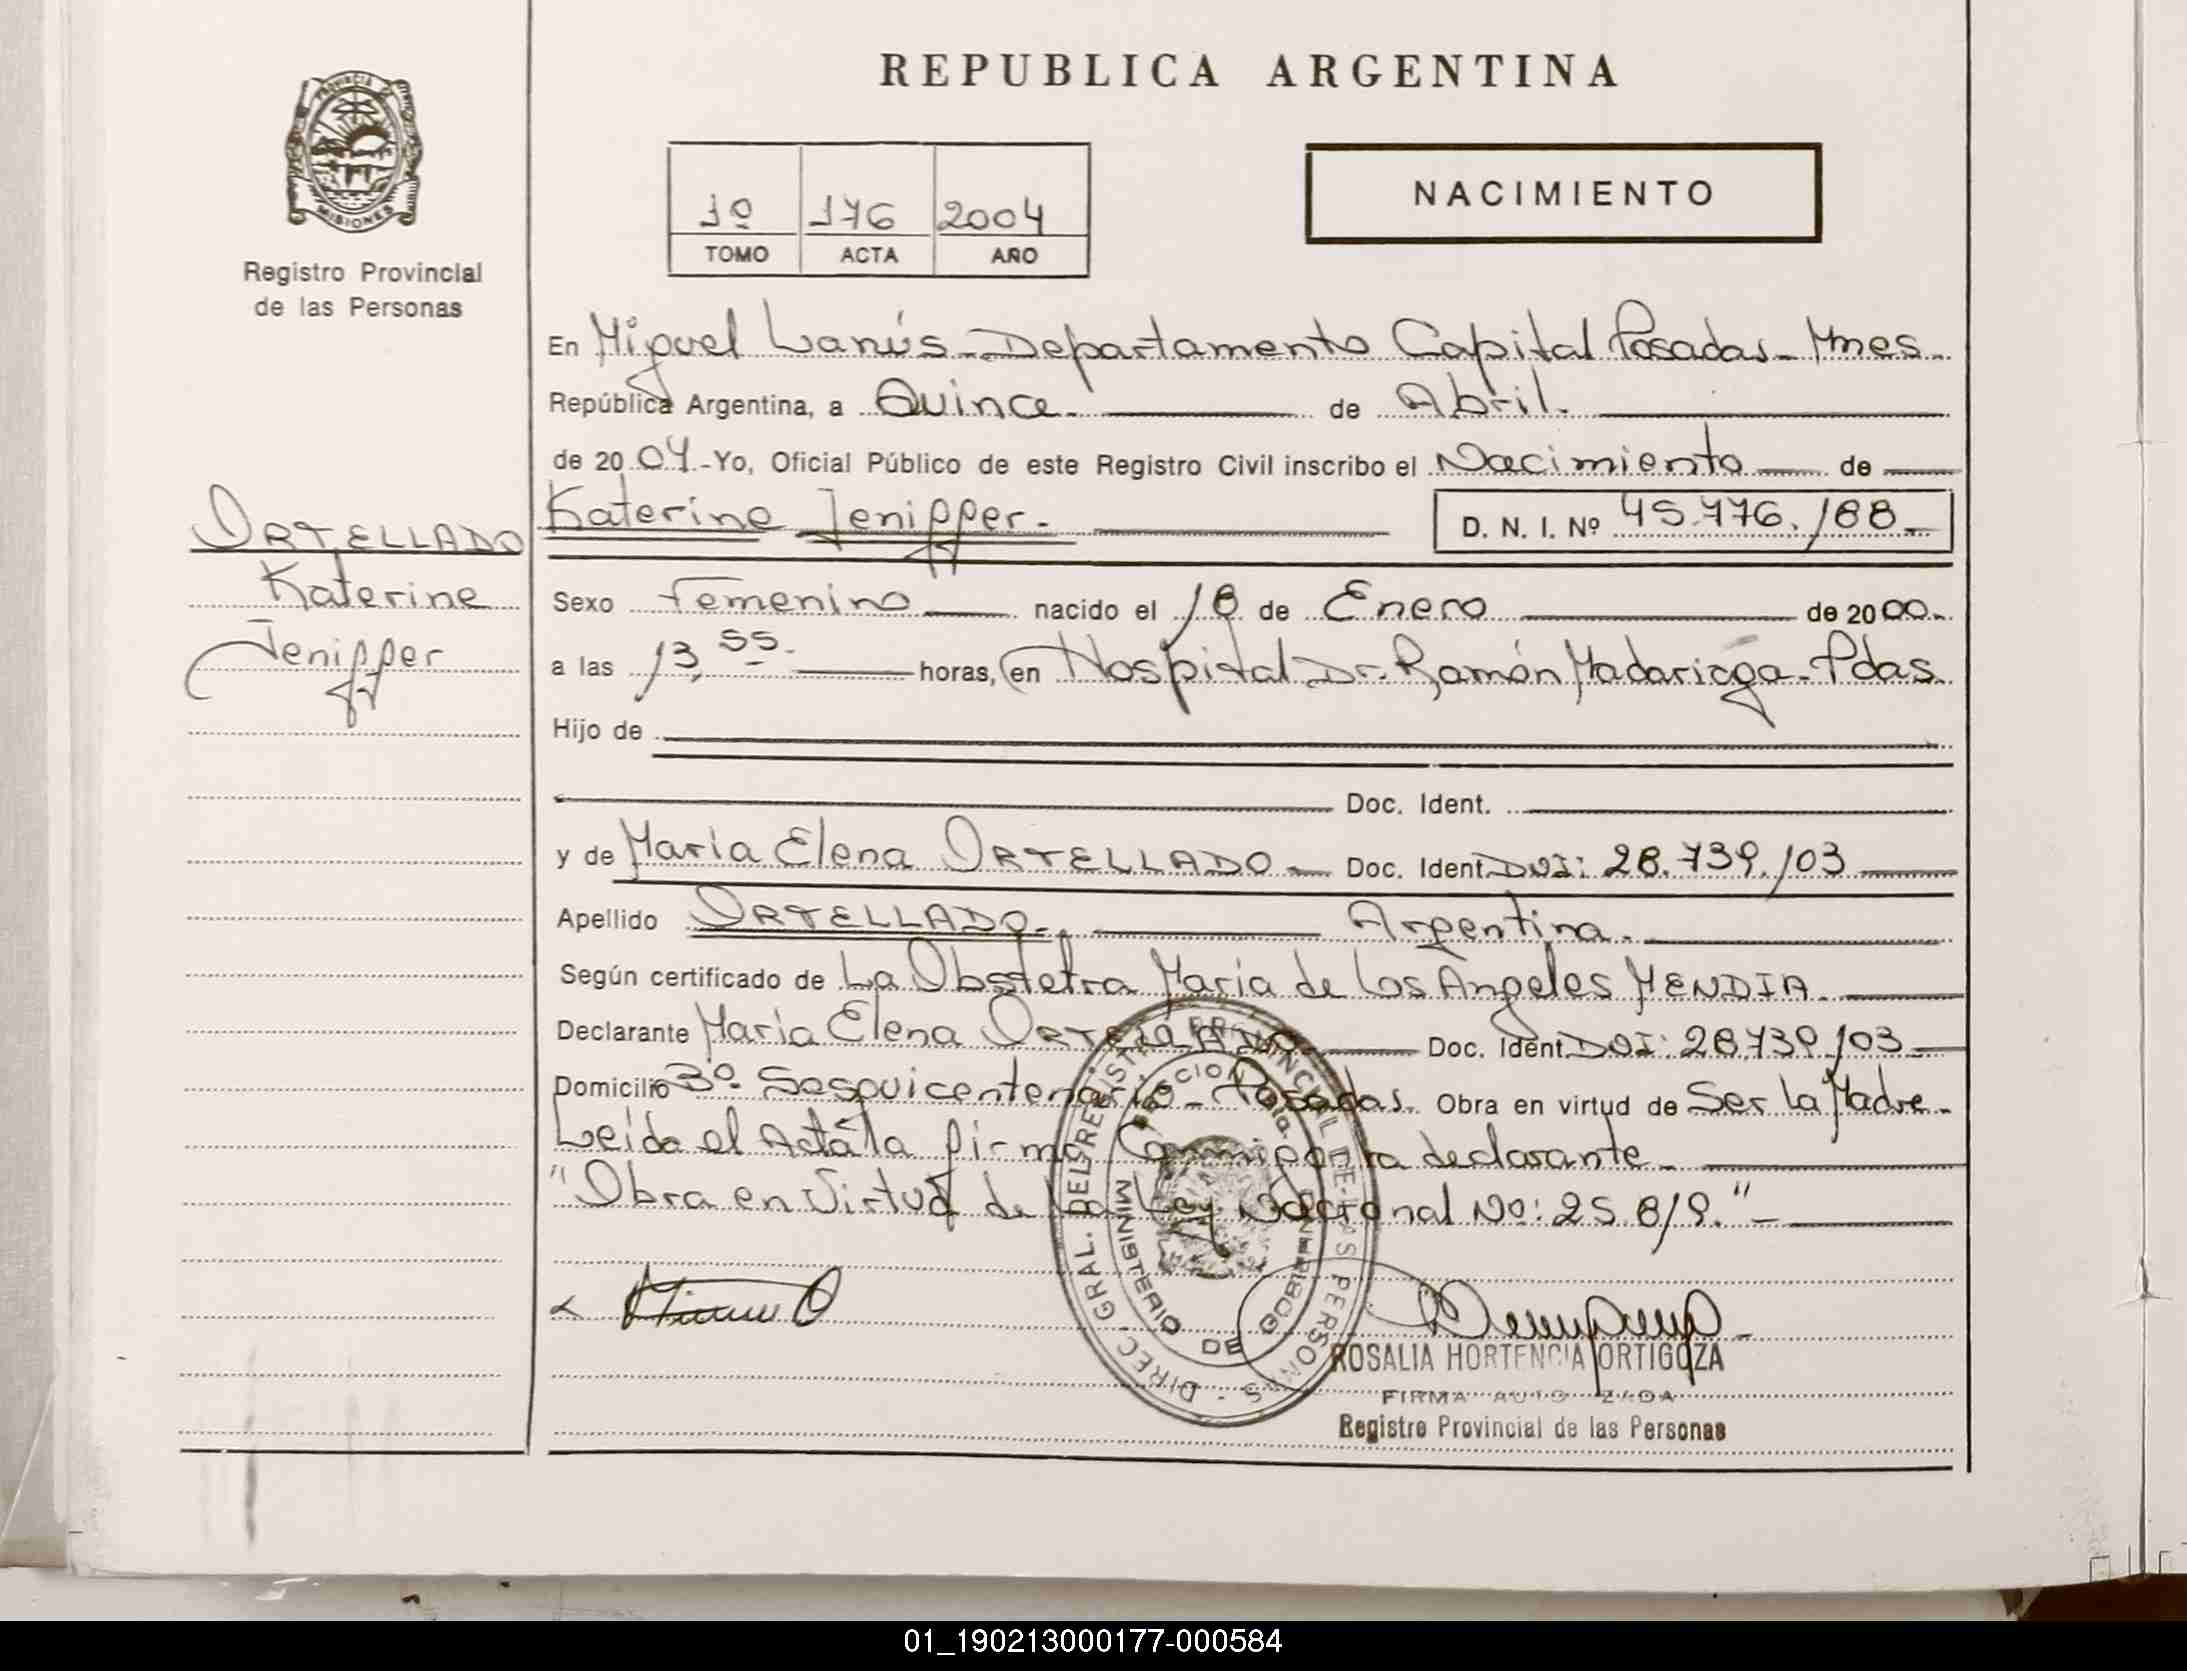 REPUBLICA ARGENTINA
PROVINCIA DE
MISIONES
Registro Provincial
de las Personas
1º 176 2004
TOMO ACTA AÑO
NACIMIENTO
En Miguel Lanús - Departamento Capital Posadas - Mnes -
República Argentina, a Quince. de Abril.
de 20 04 - Yo, Oficial Público de este Registro Civil inscribo el Nacimiento de
ORTELLADO
Katerine Jenipper. - D. N. I. Nº 45.776.188.-
Katerine
Jenipper
Sexo Femenino nacido el 18 de Enero de 20 00.-
a las 13,55.- horas, en Hospital Dr. Ramón Madariaga - Pdas
Hijo de
Doc. Ident.
y de María Elena ORTELLADO - Doc. Ident. DNI: 28.739.103
Apellido ORTELLADO.- Argentina.
Según certificado de La Obstetra María de Los Angeles MENDIA.
Declarante María Elena ORTELLADO Doc. Ident. DNI: 28.739.103
Domicilio Bº Sesquicentenario - Posadas. Obra en virtud de Ser La Madre -
Leída el Acta la firma Conmigo la declarante -
"Obra en Virtud de La Ley Nacional Nº: 25.819." -
DIREC. GRAL. DEL REGISTRO PROVINCIAL DE LAS PERSONAS -
MINISTERIO DE GOBIERNO
ROSALIA HORTENCIA ORTIGOZA
FIRMA AUTORIZADA
Registro Provincial de las Personas
01_190213000177-000584